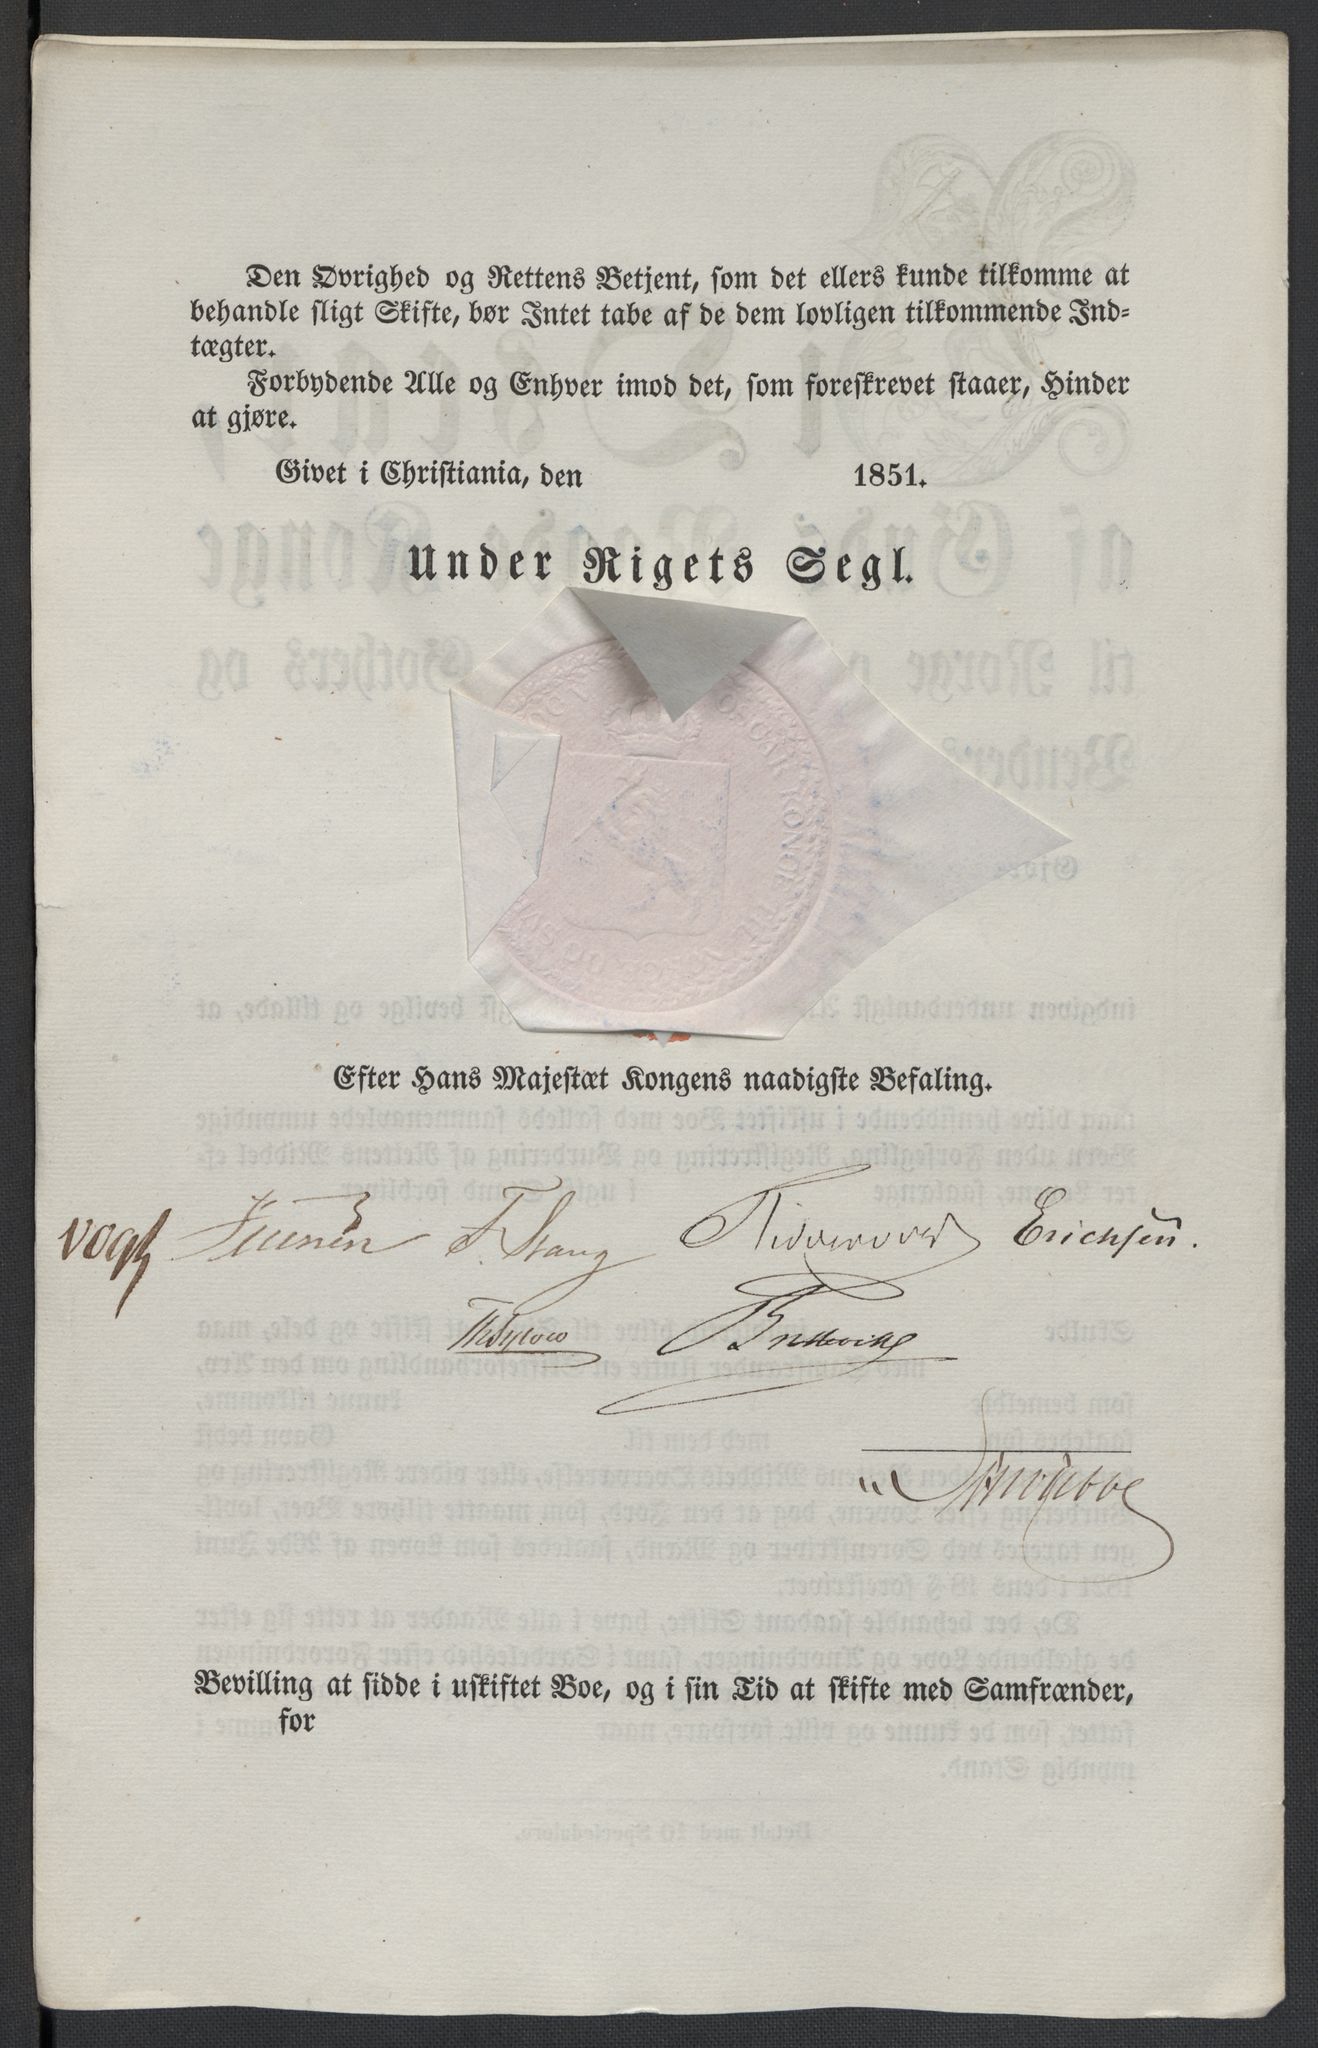 Den Øvrighed og Rettens Betjent, som det ellers kunde tilkomme at
behandle sligt Skifte, bør Intet tabe af de dem lovligen tilkommende Ind-
tægter.
Forbydende Alle og Enhver imod det, som foreskrevet staaer, Hinder
at gjøre.
Givet i Christiania, den 1851.
Under Rigets Segl.
OSCAR KONGE
NORGE OG SV
Efter Hans Majestæt Kongens naadigste Befaling.
Vogt F. Stang Riddervold Erichsen.
Bretteville
Bevilling at sidde i uskiftet Boe, og i sin Tid at skifte med Samfrænder,
for